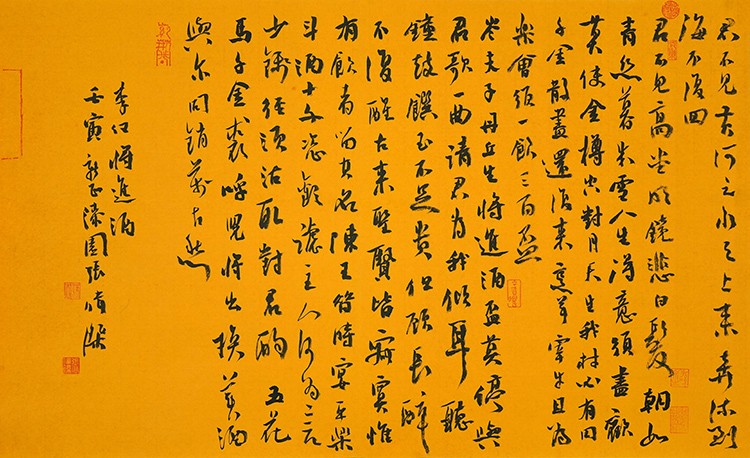 君不见黄河之水天上来奔流到
海不復回
君不见高堂明鏡悲白髮朝如
青丝暮成雪人生得意須盡歡
莫使金樽空對月天生我材必有用
千金散盡還復来烹羊宰牛且為
樂會須一飲三百盃
岑夫子丹丘生将進酒盃莫停與
君歌一曲請君为我倾耳聽
鐘鼓饌玉不足貴但願長醉
不復醒古来聖賢皆寂寞惟
有飲者留其名陳王昔時宴平樂
斗酒十千恣歡謔主人何为言
少錢徑須沽取對君酌五花
馬千金裘呼兒将出换美酒
與尔同銷萬古愁
李白将進酒
壬寅新正漆園張